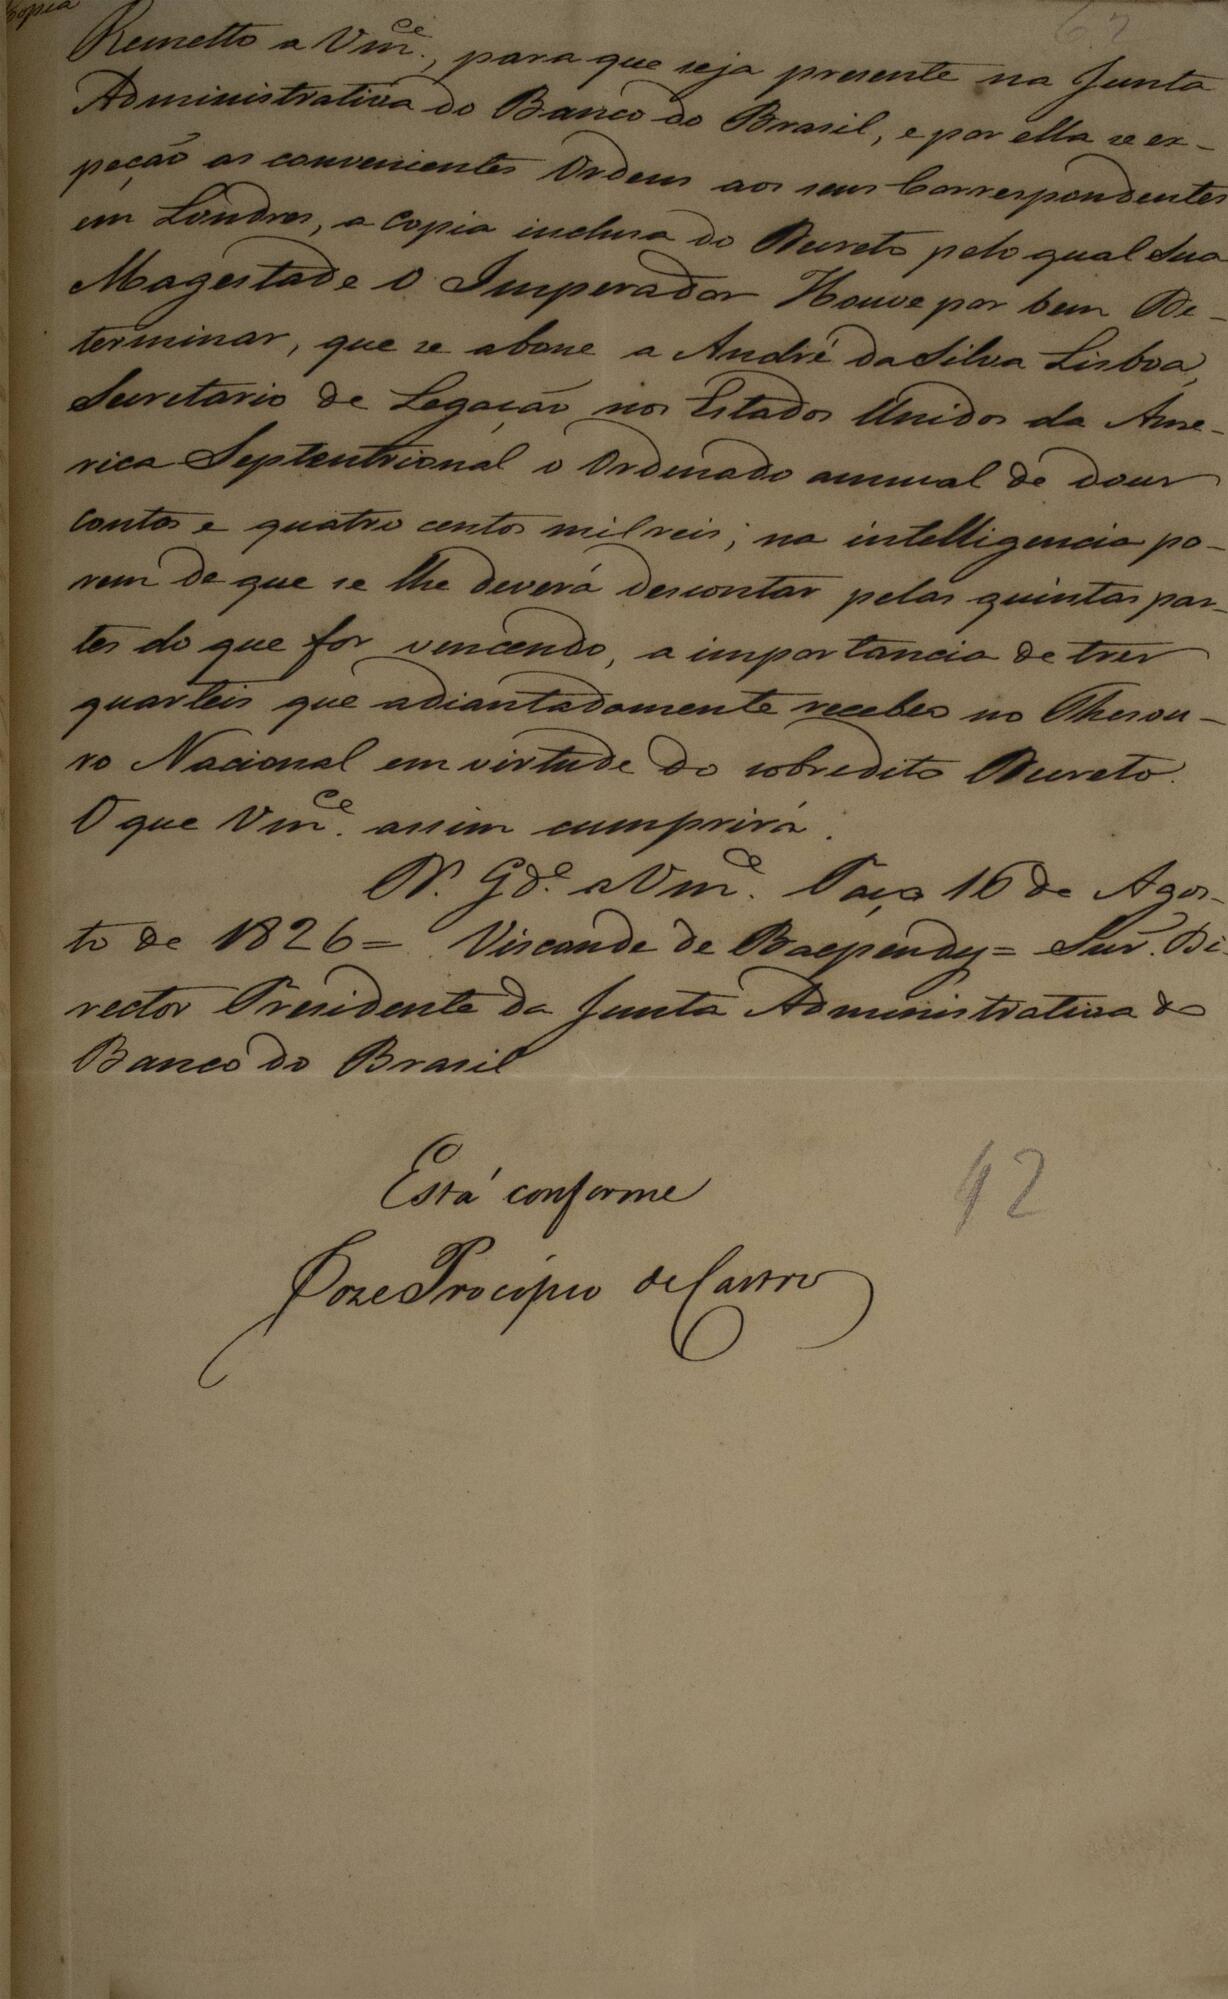 Copia
62
Remetto a Vm.ce, para que seja presente na Junta
Administrativa do Banco do Brasil, e por ella se ex-
peção as convenientes Ordens aos seus Correspondentes
em Londres, a Copia inclusa do Decreto pelo qual Sua
Magestade O Imperador Houve por bem De-
terminar, que se abone a André da Silva Lisboa,
Secretario de Legação nos Estados Unidos da Ame-
rica Septentrional o Ordenado annual de dous
contos e quatro centos mil reis; na intelligencia po-
rem de que se lhe deverá descontar pelas quintas par-
tes do que for vencendo, a importancia de tres
quarteis que adiantadamente recebeo no Thesou-
ro Nacional em virtude do sobredito Decreto.
O que Vm.ce assim cumprirá.
D.s G.de a Vm.ce. Paço 16 de Agos-
to de 1826 = Visconde de Baependy = Snr. Di-
rector Presidente da Junta Administrativa do
Banco do Brasil
Está conforme
42
Joze Procopio de Castro